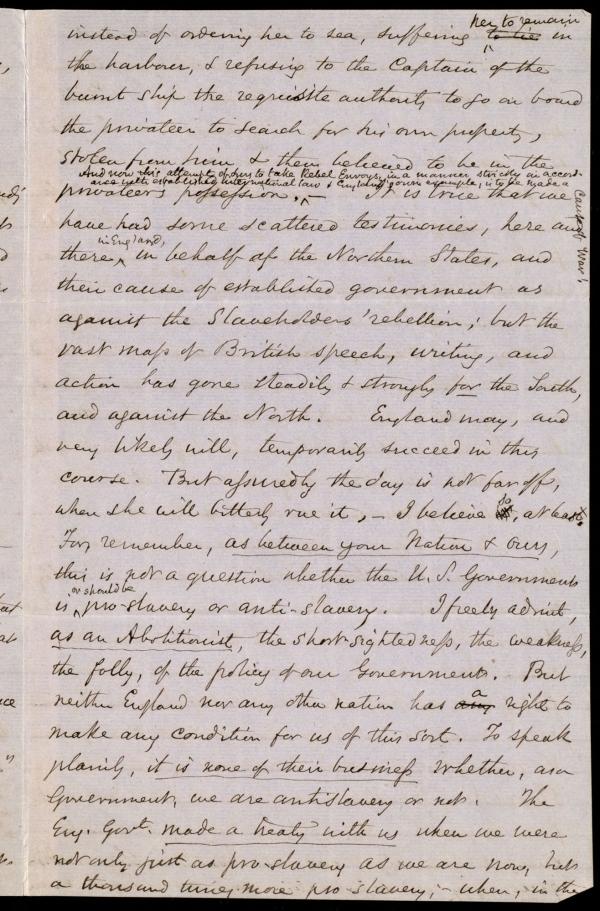 her to remain
instead of ordering her to sea, suffering to lie in
the harbour, & refusing to the Captain of the
burnt ship the requisite authority to go on board
the privateer to search for his own property,
stolen from him & then believed to be in the
And now this attempt of ours to take Rebel Envoys, in a manner strictly in accord-
ance with established international law & England's own example, is to be made a
Cause of War!
privateer's possession. – It is true that we
have had some scattered testimonies, here and
in England,
there, in behalf of the Northern States, and
their cause of established government as
against the Slaveholders' rebellion; but the
vast mass of British speech, writing, and
action has gone steadily & strongly for the South,
and against the North. England may, and
very likely will, temporarily succeed in this
course. But assuredly the day is not far off,
when she will bitterly rue it, – I believe so, at least.
For, remember, as between your Nation & ours,
this is not a question whether the U.S. Government
or should be
is pro-slavery or anti-slavery. I freely admit,
as an Abolitionist, the short-sightedness, the weakness,
the folly, of the policy of our Government. But
neither England nor any other nation has any a right to
make any condition for us of this sort. To speak
plainly, it is none of their business whether, as a
Government, we are antislavery or not. The
Eng. Govt. made a treaty with us when we were
not only just as pro-slavery as we are now, but
a thousand times more pro slavery; – when, in the